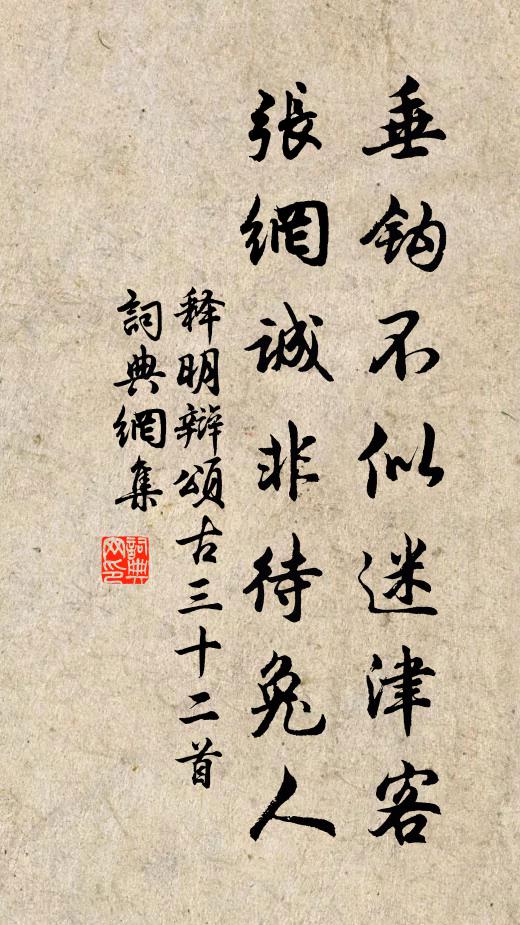 垂鈎不似迷津客
張網誠非待兔人
释明辯頌古三十二首
詞典網集
詞典网印